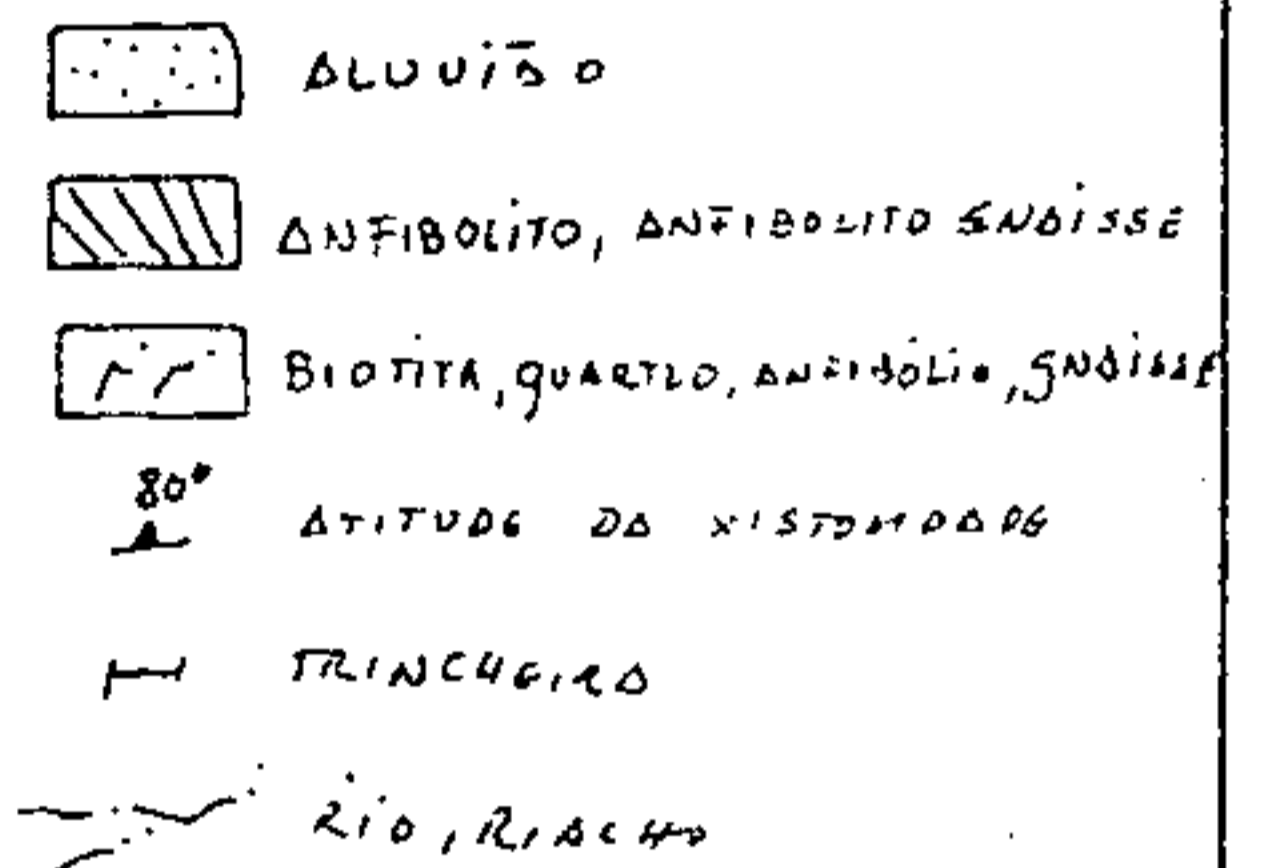 ALUVIÃO
ANFIBOLITO, ANFIBOLITO GNAISSE
BIOTITA, QUARTZO, ANFIBÓLIO, GNAISSE
80°
ATITUDE DA XISTOSIDADE
TRINCHEIRA
RIO, RIACHO